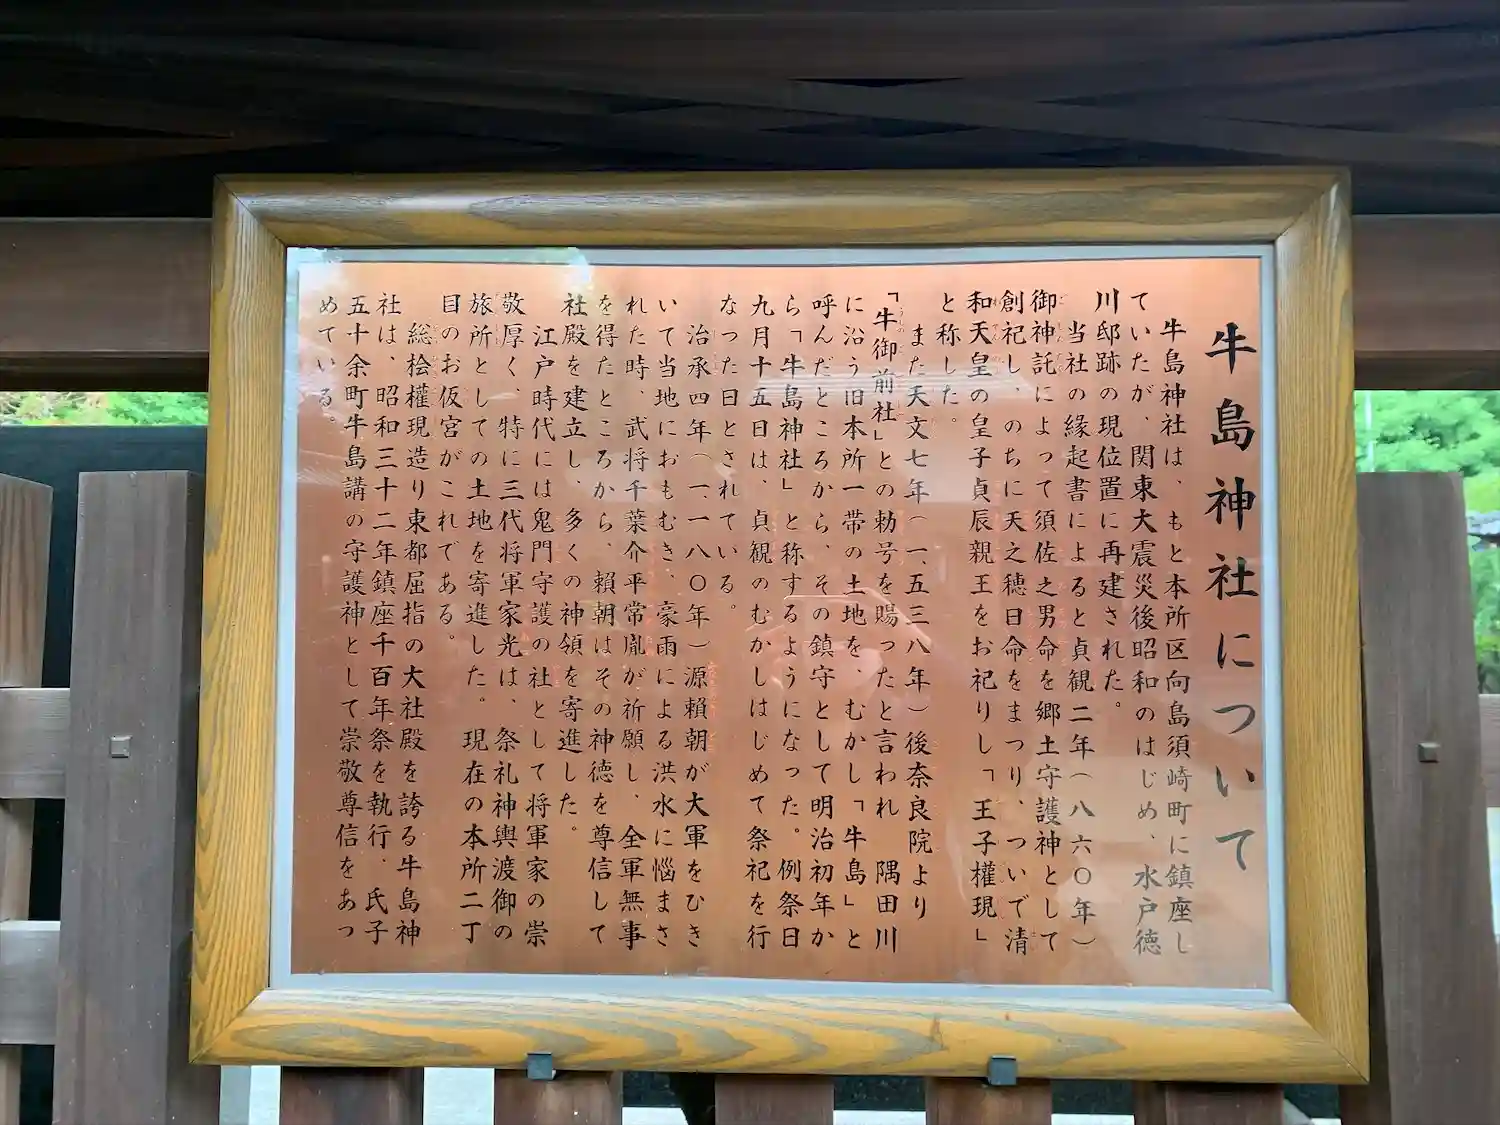 牛島神社について
牛島神社は、もと本所区向島須崎町に鎮座し
ていたが、関東大震災後昭和のはじめ、水戸徳
川邸跡の現位置に再建された。
当社の縁起書によると貞観二年(八六〇年)
御神託によって須佐之男命を郷土守護神として
創祀し、のちに天之穂日命をまつり、ついで清
和天皇の皇子貞辰親王をお祀りし「王子權現」
と称した。
また天文七年(一、五三八年)後奈良院より
「牛御前社」との勅号を賜ったと言われ 隅田川
に沿う旧本所一帯の土地を、むかし「牛島」と
呼んだところから、その鎮守として明治初年か
ら「牛島神社」と称するようになった。例祭日
九月十五日は、貞観のむかしはじめて祭祀を行
なった日とされている。
治承四年(一、一八〇年)源賴朝が大軍をひき
いて当地におもむき、豪雨による洪水に悩まさ
れた時、武将千葉介平常胤が祈願し、全軍無事
を得たところから、賴朝はその神徳を尊信して
社殿を建立し、多くの神領を寄進した。
江戸時代には鬼門守護の社として将軍家の崇
敬厚く、特に三代将軍家光は、祭礼神輿渡御の
旅所としての土地を寄進した。現在の本所二丁
目のお仮宮がこれである。
総桧權現造り東都屈指の大社殿を誇る牛島神
社は、昭和三十二年鎮座千百年祭を執行、氏子
五十余町牛島講の守護神として崇敬尊信をあつ
めている。